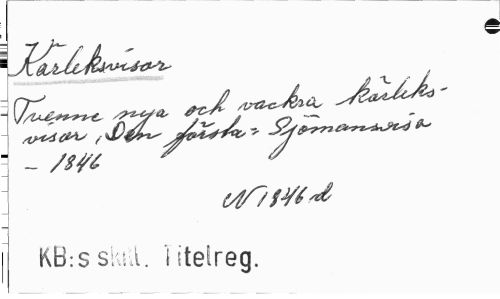 Kärleksvisor
Tvenne nya och vackra kärleks-
visor, Den första = Sjömansvisa
- 1846
N 1846 d
KB:s skill. Titelreg.